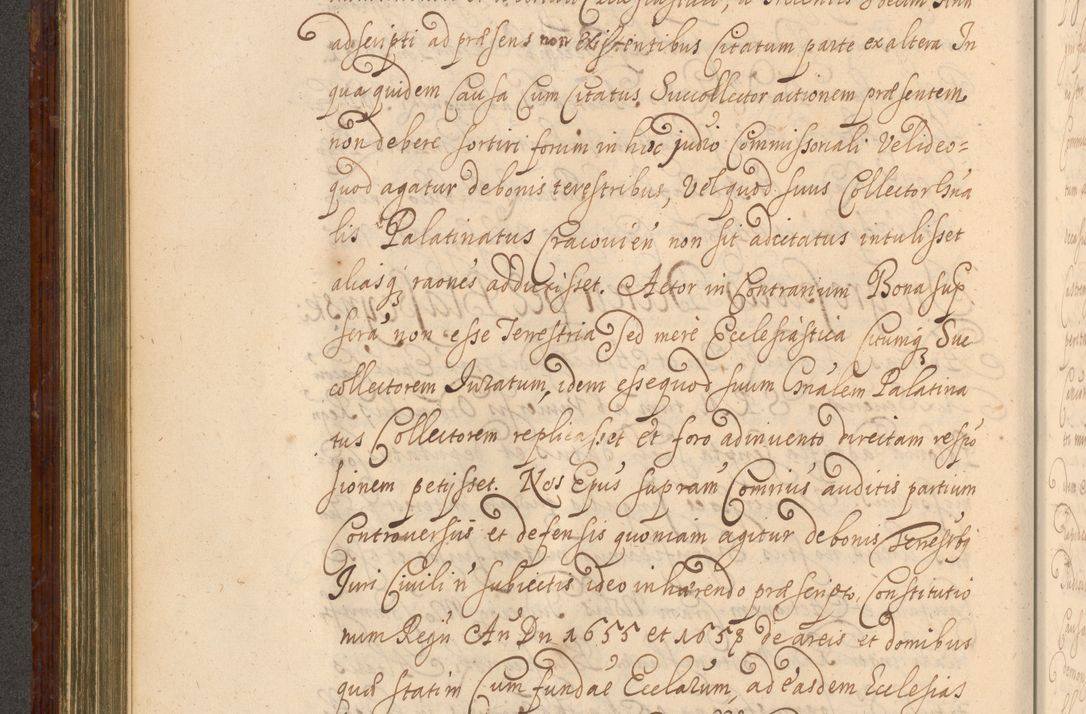 adscripti ad præsens non existentibus Citatum parte ex altera In
qua quidem Causa Cum Citatus Succollector actionem præsentem
non debere sortiri forum in hoc judio Commissoriali Velideo=
quod agatur de bonis terestribus, Vel quod suus Collector Gna
lis Palatinatus Cracovien̄ non sit adcitatus intulisset
aliasq, raōnes adduxisset. Actor in Contrarium Bona sup
non esse Terrestria sed mere Ecclesiastica Citumq, Suc
collectorem Juratum, idem esse quod suum Gnālem Palatina
tus Collectorem replicasset et foro adinvento directam respō
sionem petijsset. Nos Epūs supram Comriūs auditis partium
Controversiis et defensis quoniam agitur de bonis
Juri Civili n̄ subiectis ideo inhærendo præscripto, Constitutio
num Regn̄i An̄ Dn̄i 1655 et 1658 de areis et domibus
quæ statim Cum fundāe Ecclarum, ad easdem Ecclesias